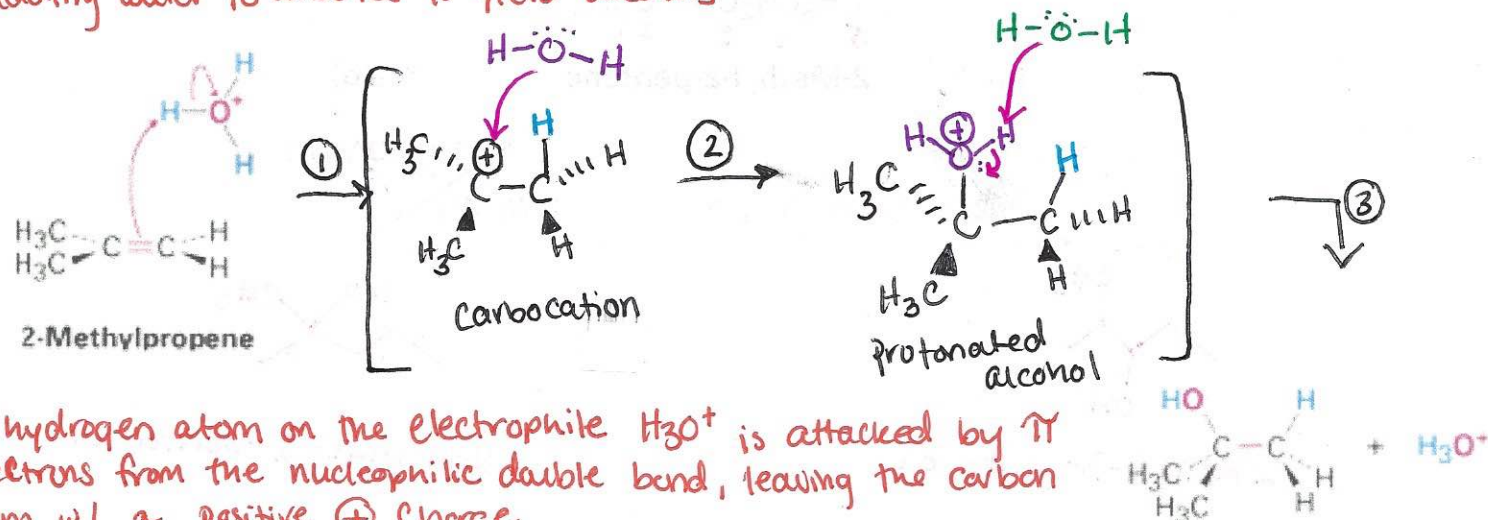 H
H-O+
H
H3C C=C H
H3C H
2-Methylpropene
①
H-Ö-H
H3C ⊕ H
C-C H
H3C H
carbocation
②
H-Ö-H
H ⊕ H
O:
H3C H
C-C H
H3C H
protonated
alcohol
③
hydrogen atom on the electrophile H3O+ is attacked by π
ctrons from the nucleophilic double bond, leaving the carbon
w/ a positive ⊕ charge.
HO H
C-C
H3C H
H3C H
+ H3O+